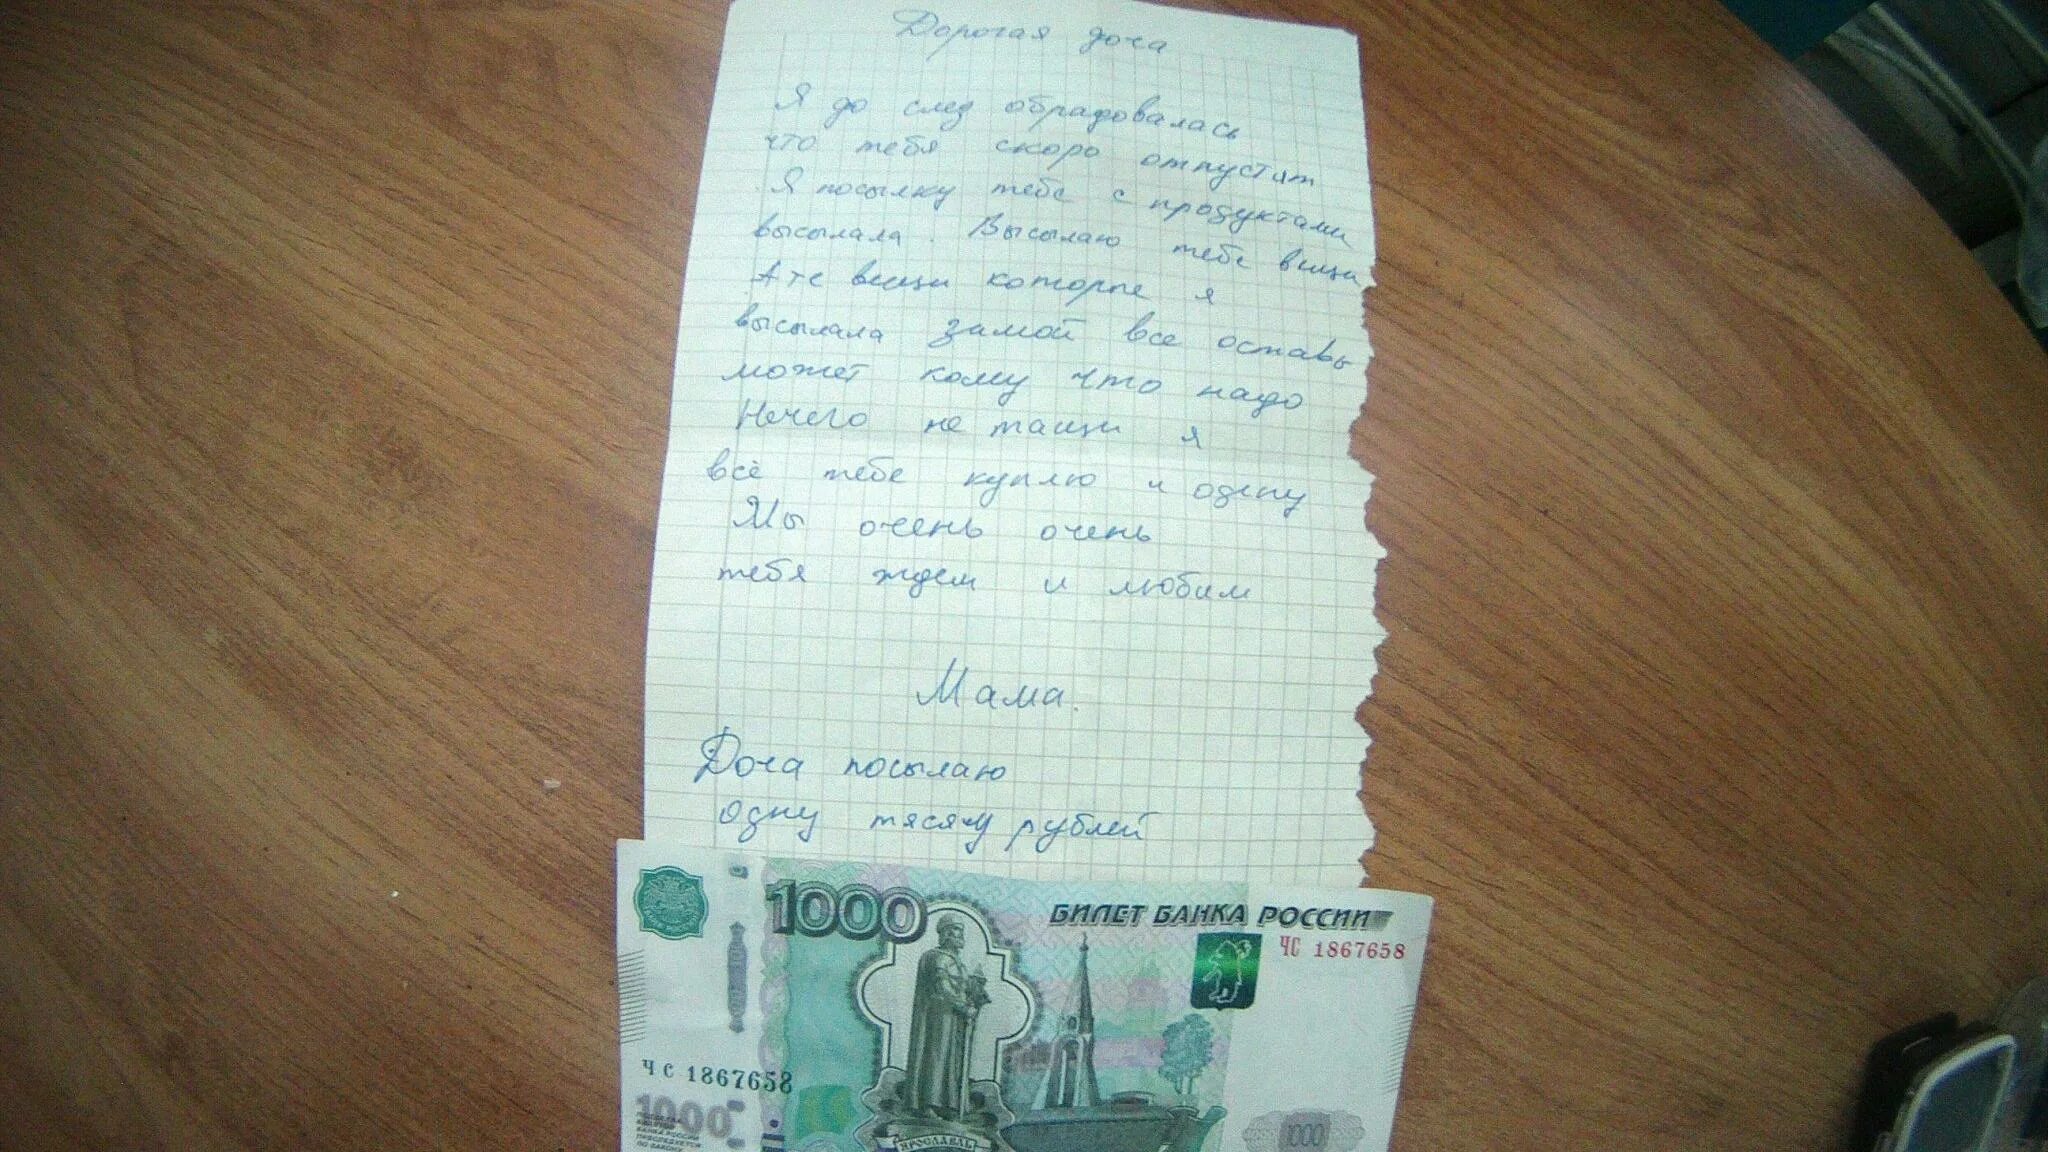 Дорогая доча
Я до след обрадовалась
что тебя скоро отпустят
Я посылку тебе с продуктами
высылала. Высылаю тебе вещи
А те вещи которые я
высылала зимой все оставь
может кому что надо
Нечего не тащи я
всё тебе куплю и одену
Мы очень очень
тебя ждем и любим
Мама.
Доча посылаю
одну тясячу рублей
1000
БИЛЕТ БАНКА РОССИИ
ЧС 1867658
ЧС 1867658
1000
ЯРОСЛАВЛЬ
1000